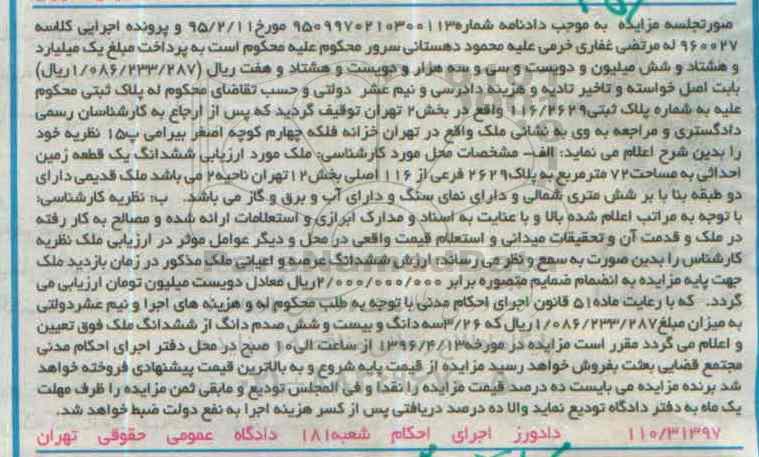 صورتجلسه مزایده به موجب دادنامه شماره۹۵۰۹۹۷۰۲۱۰۳۰۰۱۱۳ مورخ۹۵/۲/۱۱ و پرونده اجرایی کلاسه
۹۶۰۰۲۷ له مرتضی غفاری خرمی علیه محمود دهستانی سرور محکوم علیه محکوم است به پرداخت مبلغ یک میلیارد
و هشتاد و شش میلیون و دویست و سی و سه هزار و دویست و هشتاد و هفت ریال (۱/۰۸۶/۲۳۳/۲۸۷ریال)
بابت اصل خواسته و تاخیر تادیه و هزینه دادرسی و نیم عشر دولتی و حسب تقاضای محکوم له پلاک ثبتی محکوم
علیه به شماره پلاک ثبتی۱۱۶/۲۶۲۹ واقع در بخش۲ تهران توقیف گردید که پس از ارجاع به کارشناسان رسمی
دادگستری و مراجعه به وی به نشانی ملک واقع در تهران خزانه فلکه چهارم کوچه اصغر بیرامی پ۱۵ نظریه خود
را بدین شرح اعلام می نماید: الف- مشخصات محل مورد کارشناسی: ملک مورد ارزیابی ششدانگ یک قطعه زمین
احداثی به مساحت۷۲ مترمربع به پلاک۲۶۲۹ فرعی از ۱۱۶ اصلی بخش۱۲ تهران ناحیه۲ می باشد ملک قدیمی دارای
دو طبقه بنا با بر شش متری شمالی و دارای نمای سنگ و دارای آب و برق و گاز می باشد. ب: نظریه کارشناسی:
با توجه به مراتب اعلام شده بالا و با عنایت به اسناد و مدارک ابرازی و استعلامات ارائه شده و مصالح به کار رفته
در ملک و قدمت آن و تحقیقات میدانی و استعلام قیمت واقعی در محل و دیگر عوامل موثر در ارزیابی ملک نظریه
کارشناس را بدین صورت به سمع و نظر می رساند: ارزش ششدانگ عرصه و اعیانی ملک مذکور در زمان بازدید ملک
جهت پایه مزایده به انضمام ضمایم متصوره برابر ۲/۰۰۰/۰۰۰/۰۰۰ریال معادل دویست میلیون تومان ارزیابی می
گردد. که با رعایت ماده۵۱ قانون اجرای احکام مدنی با توجه به طلب محکوم له و هزینه های اجرا و نیم عشردولتی
به میزان مبلغ۱/۰۸۶/۲۳۳/۲۸۷ریال که ۳/۲۶سه دانگ و بیست و شش صدم دانگ از ششدانگ ملک فوق تعیین
و اعلام می گردد مقرر است مزایده در مورخه۱۳۹۶/۴/۱۳ از ساعت الی۱۰ صبح در محل دفتر اجرای احکام مدنی
مجتمع قضایی بعثت بفروش خواهد رسید مزایده از قیمت پایه شروع و به بالاترین قیمت پیشنهادی فروخته خواهد
شد برنده مزایده می بایست ده درصد قیمت مزایده را نقدا و فی المجلس تودیع و مابقی ثمن مزایده را ظرف مهلت
یک ماه به دفتر دادگاه تودیع نماید والا ده درصد دریافتی پس از کسر هزینه اجرا به نفع دولت ضبط خواهد شد.
۱۱۰/۳۱۳۹۷ دادورز اجرای احکام شعبه۱۸۱ دادگاه عمومی حقوقی تهران